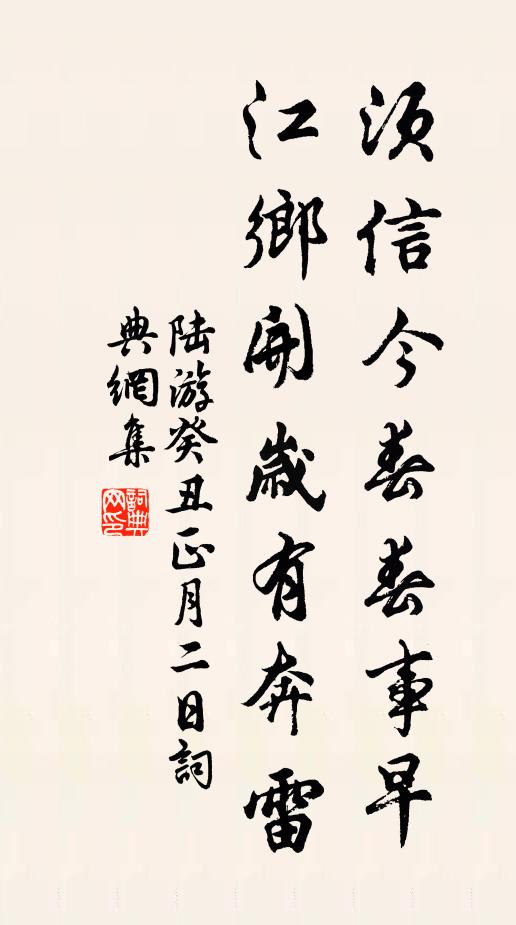 須信今春春事早
江鄉開歲有奔雷
陸游癸丑正月二日詞
典網集
詞典網印